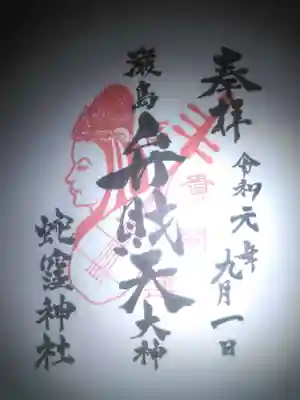 奉拝
令和元年九月一日
巌島
弁財天
大神
蛇窪神社